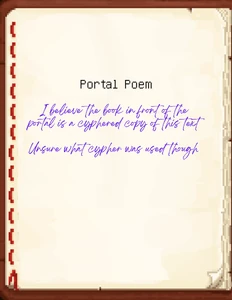 Portal Poem
I believe the book in front of the
portal is a cyphered copy of this text
Unsure what cypher was used though